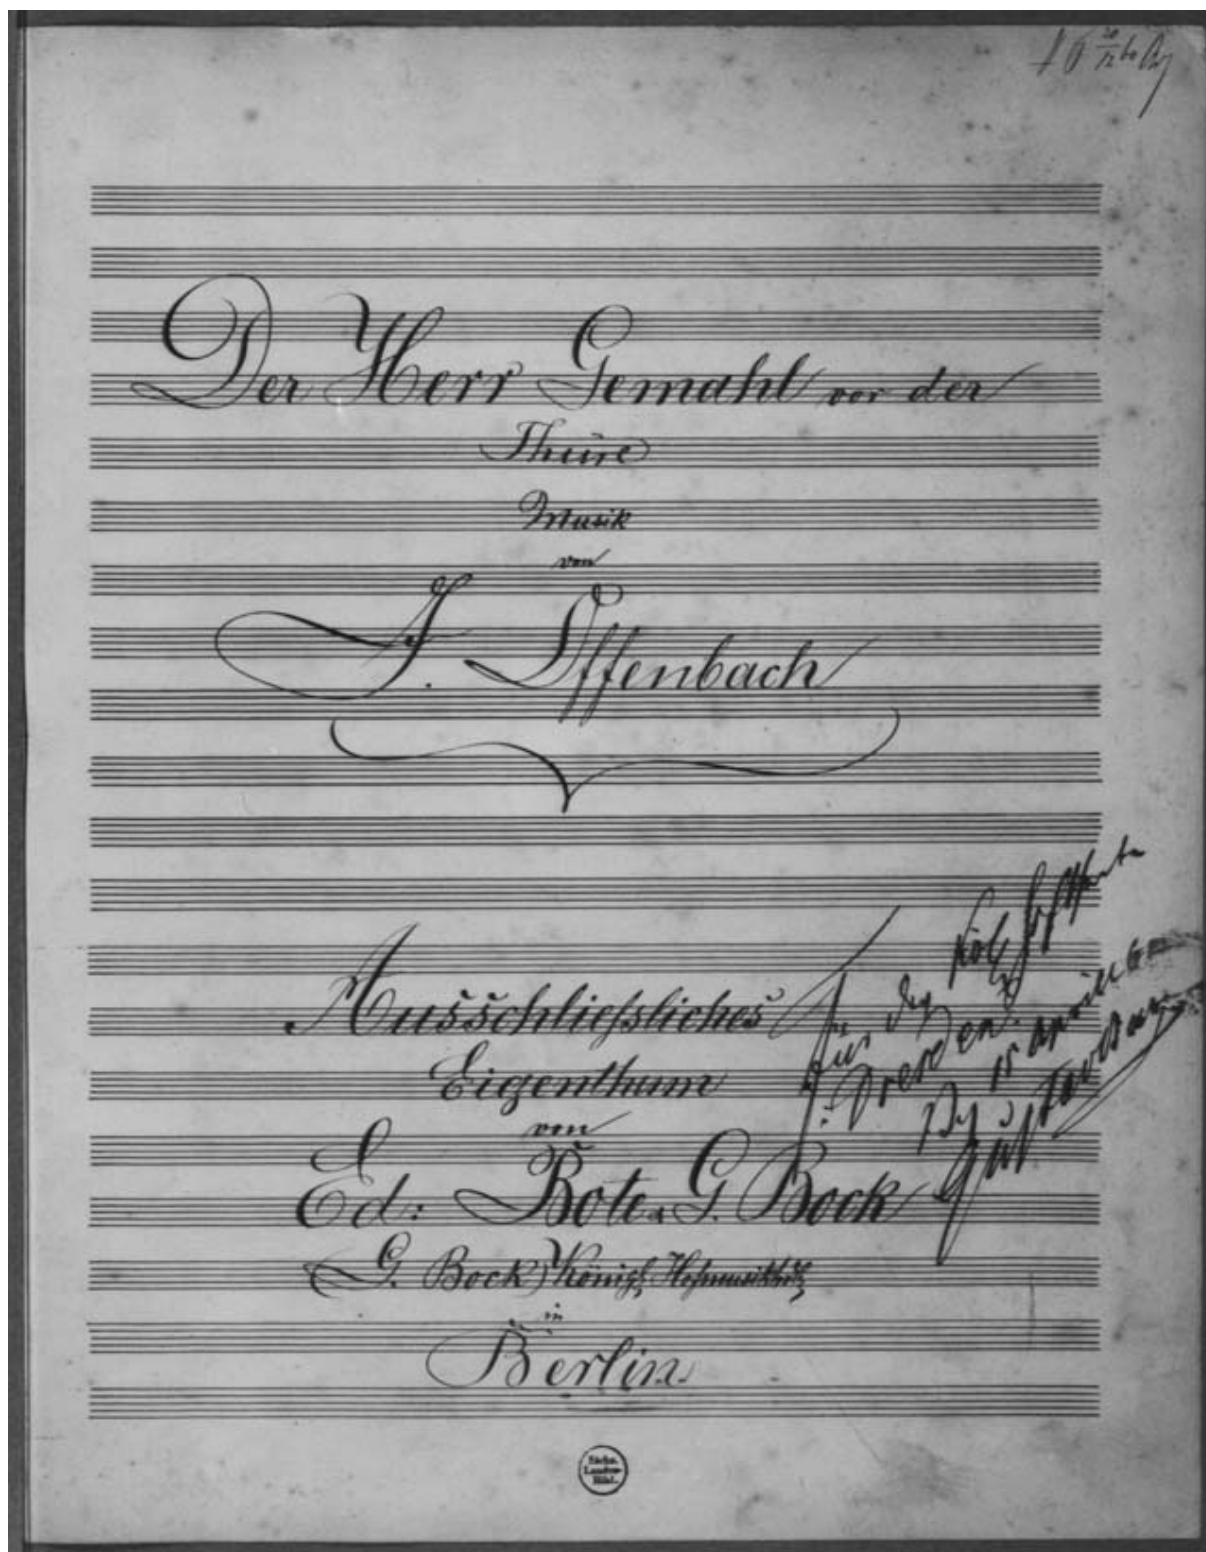 Der Herr Gemahl vor der
Thüre
Musik
von
J. Offenbach
Ausschliessliches
Eigenthum
von
Ed: Bote & G. Bock
(G. Bock) Königl. Hofmusikhdlg
in
Berlin
Für das Kgl. Hoftheater
Dresden.
15 April
Gustav
Sächs.
Landes-
Bibl.